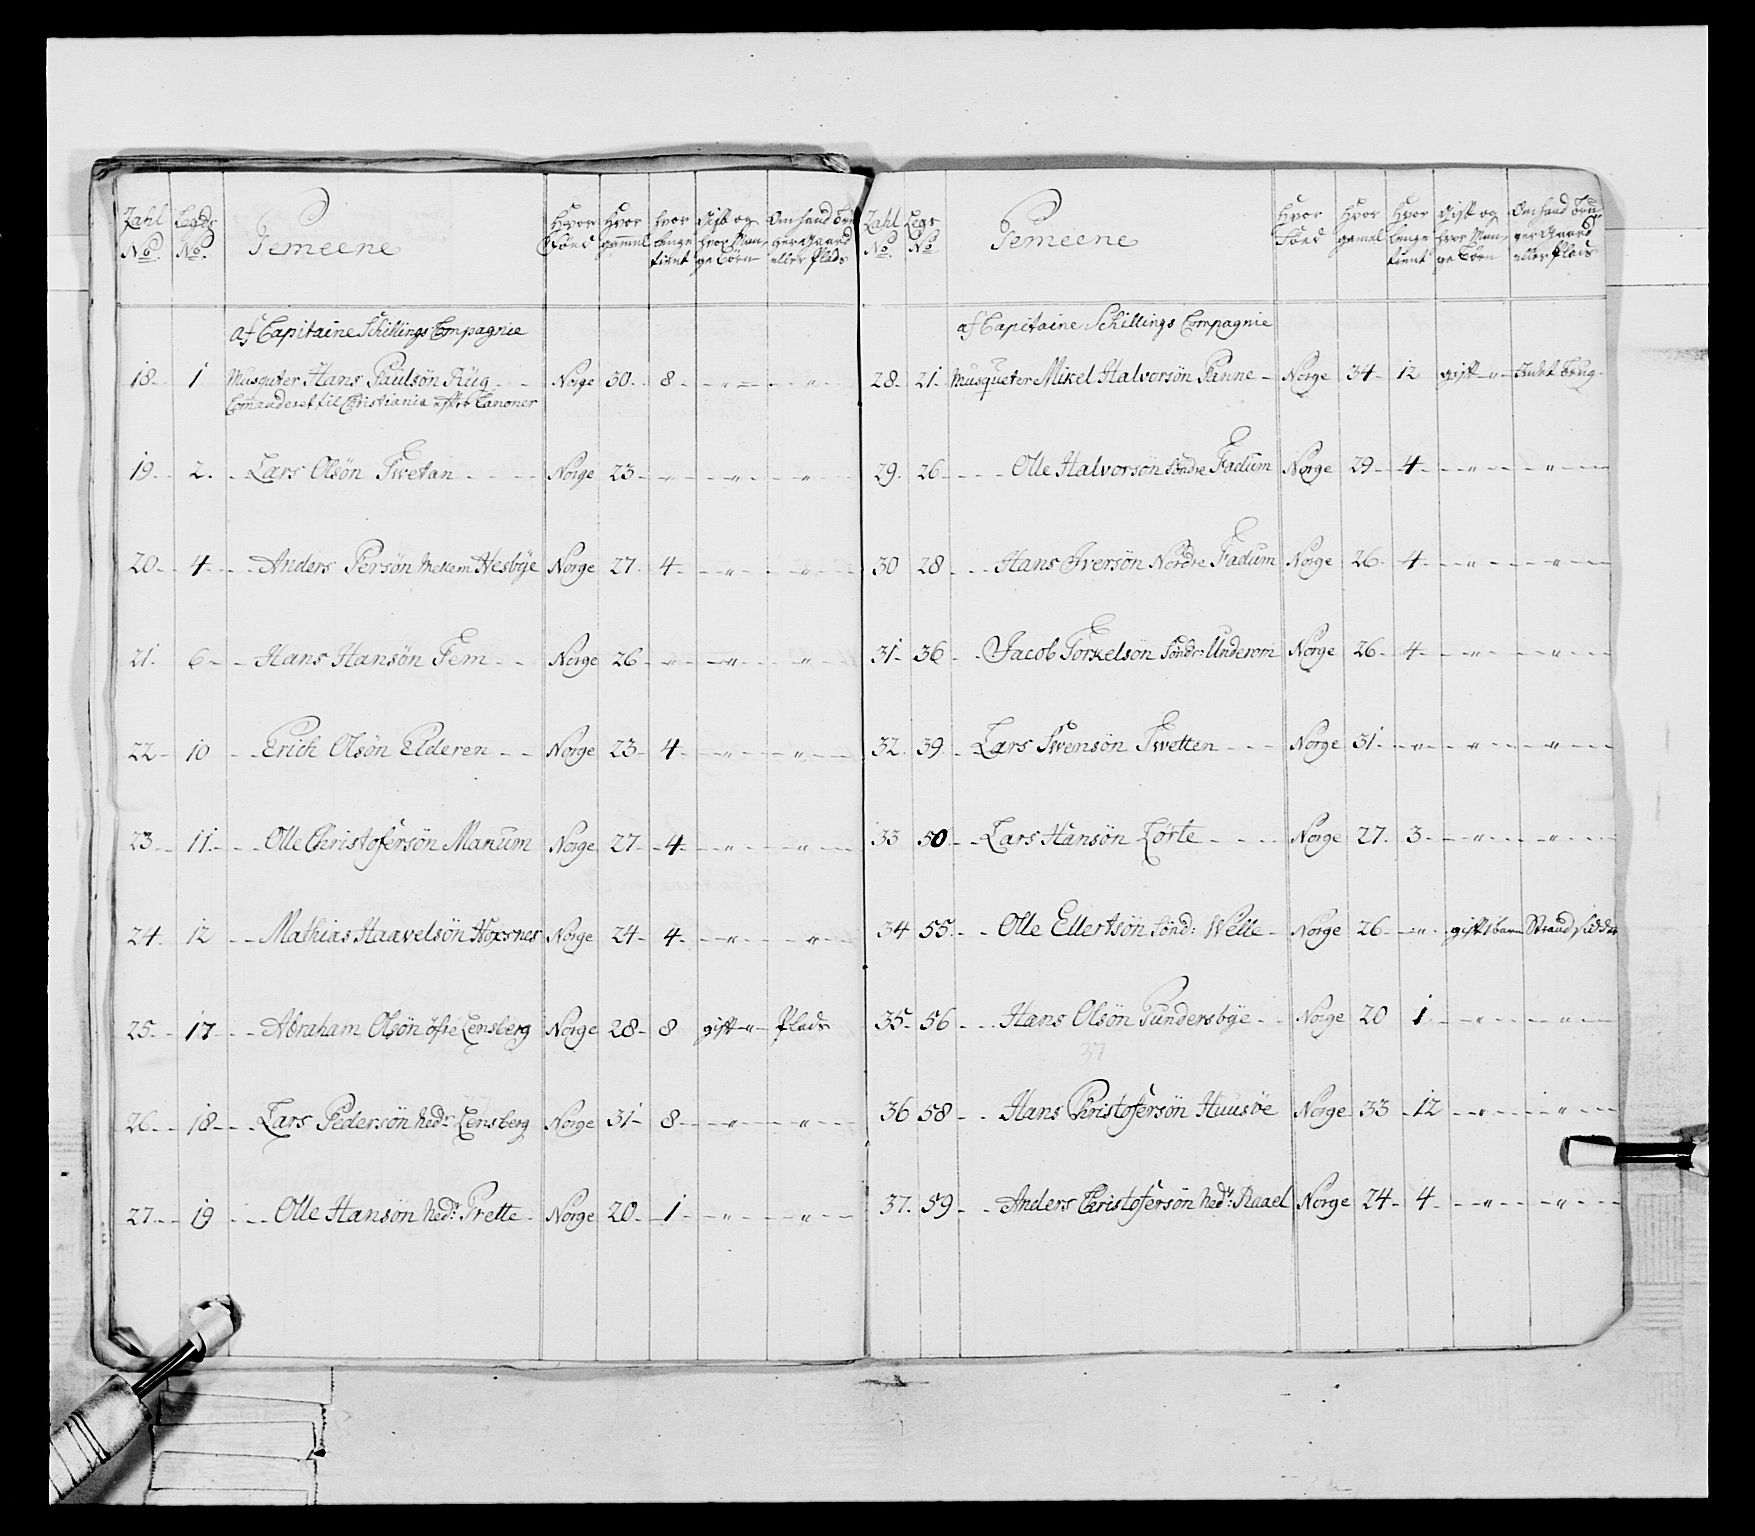 Zahl Legds Gemeene Hvor Hvor hvor Gift og Om hand bru
No. No. Föed gammel lenge hvor Man ger Gaard
tient ge Börn eller Plads
af Capitaine Schillings Compagnie
18. 1 Musqueter Hans Paulsön Rüg Norge 30. 8 - " - "
Comanderet til Christiania efter Canoner
19. 2. Lars Olsön Twetan Norge 23 - " - " - "
20. 4. Anders Persön Melem Hesbÿe Norge 27. 4 - " - "
21. 6 Hans Hansön Fem Norge 26 - " - " - "
22. 10 Erich Olsön Elderen Norge 23 4 - " - "
23. 11. Olle Christofersön Manum Norge 27. 4 - " - "
24. 12 Mathias Haavelsön Norge 24 4 - " - "
25. 17 Abraham Olsön öfre Lensberg Norge 28 8 gift - " - Plads
26. 18. Lars Pedersön nedr: Lensberg Norge 31 8 - " - "
27. 19 Olle Hansön nedr: Prette Norge 20. 1 - " - "
Zahl Legs Gemeene Hvor Hvor Hvor Gift og Om hand bru
No. No. Föed gamel lenge hvor Man ger Gaard
tient ge Börn eller Plads
af Capitaine Schillings Compagnie
28. 21. Musqueter Mikel Halvorsön Panne Norge 34 12 gift - " - brug
29. 26 Olle Halvorsön Söndre Fadum Norge 29 4 - " - "
30 28 Hans Iversön Nordre Fadum Norge 26 4 - " - "
31 36 Jacob Torkelsön Söndr: Norge 26 4 - " - "
32. 39. Lars Swensön Twetten Norge 31 - " - " - "
33 50 Lars Hansön Lörte Norge 27. 3 - " - "
34 55 Olle Ellertsön Sönd: Welle Norge 26 - " - gift 1 barn Strand sidder
35 56 Hans Olsön Gundersbÿe Norge 20 1 - " - "
37
36 58 Hans Christofersön Huusöe Norge 33 12 - " - "
37. 59 Anders Christofersön nedr: Raael Norge 24 4 - " - "